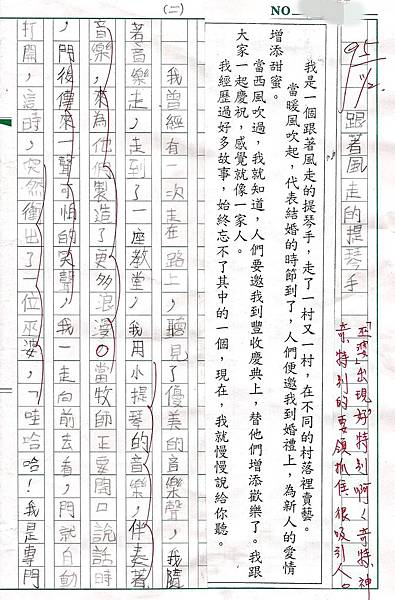 (二)
NO.
95 11/2
「巫婆」出現好特別啊!奇特、神
奇、特別的要領抓住很吸引人。
跟著風走的提琴手
我是一個跟著風走的提琴手,走了一村又一村,在不同的村落裡賣藝。
當暖風吹起,代表結婚的時節到了,人們便邀我到婚禮上,為新人的愛情
增添甜蜜。
當西風吹過,我就知道,人們要邀我到豐收慶典上,替他們增添歡樂了。我跟
大家一起慶祝,感覺就像一家人。
我經歷過好多故事,始終忘不了其中的一個,現在,我就慢慢說給你聽。
我曾經有一次走在路上,聽見了優美的音樂聲,我隨
著音樂走,走到了一座教堂,我用小提琴的音樂,伴奏著
音樂,來為他們製造了更多浪漫。當牧師正要開口說話時
,門後傳來一聲可怕的笑聲,我一走向前去看,門就自動
打開,這時,突然衝出了一位巫婆,「哇哈哈!我是專門